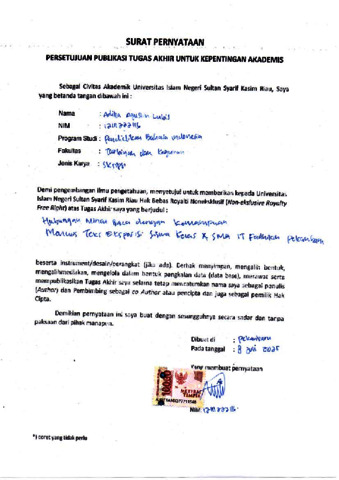 SURAT PERNYATAAN
PERSETUJUAN PUBLIKASI TUGAS AKHIR UNTUK KEPENTINGAN AKADEMIS
Sebagai Civitas Akademik Universitas Islam Negeri Sultan Syarif Kasim Riau, Saya
yang betanda tangan dibawah ini :
Nama :
NIM :
Program Studi : Pendidikan Bahasa Indonesia
Fakultas : Tarbiyah dan Keguruan
Jenis Karya : Skripsi
Demi pengembangan ilmu pengetahuan, menyetujui untuk memberikan kepada Universitas
Islam Negeri Sultan Syarif Kasim Riau Hak Bebas Royalti Noneksklusif (Non-eksclusive Royalty
Free Right) atas Tugas Akhir saya yang berjudul :
Hubungan Minat Baca dengan Kemampuan
Menulis Teks Eksposisi Siswa Kelas X SMA IT Fadhilah Pekanbaru
beserta instrument/desain/perangkat (jika ada). Berhak menyimpan, mengalih bentuk,
mengalihmediakan, mengelola dalam bentuk pangkalan data (data base), merawat serta
mempublikasikan Tugas Akhir saya selama tetap mencantumkan nama saya sebagai penulis
(Author) dan Pembimbing sebagai co Author atau pencipta dan juga sebagai pemilik Hak
Cipta.
Demikian pernyataan ini saya buat dengan sesungguhnya secara sadar dan tanpa
paksaan dari pihak manapun.
Dibuat di : Pekanbaru
Pada tanggal : 8 2025
Yang membuat pernyataan
METERAI
TEMPEL
NIM.
*) coret yang tidak perlu